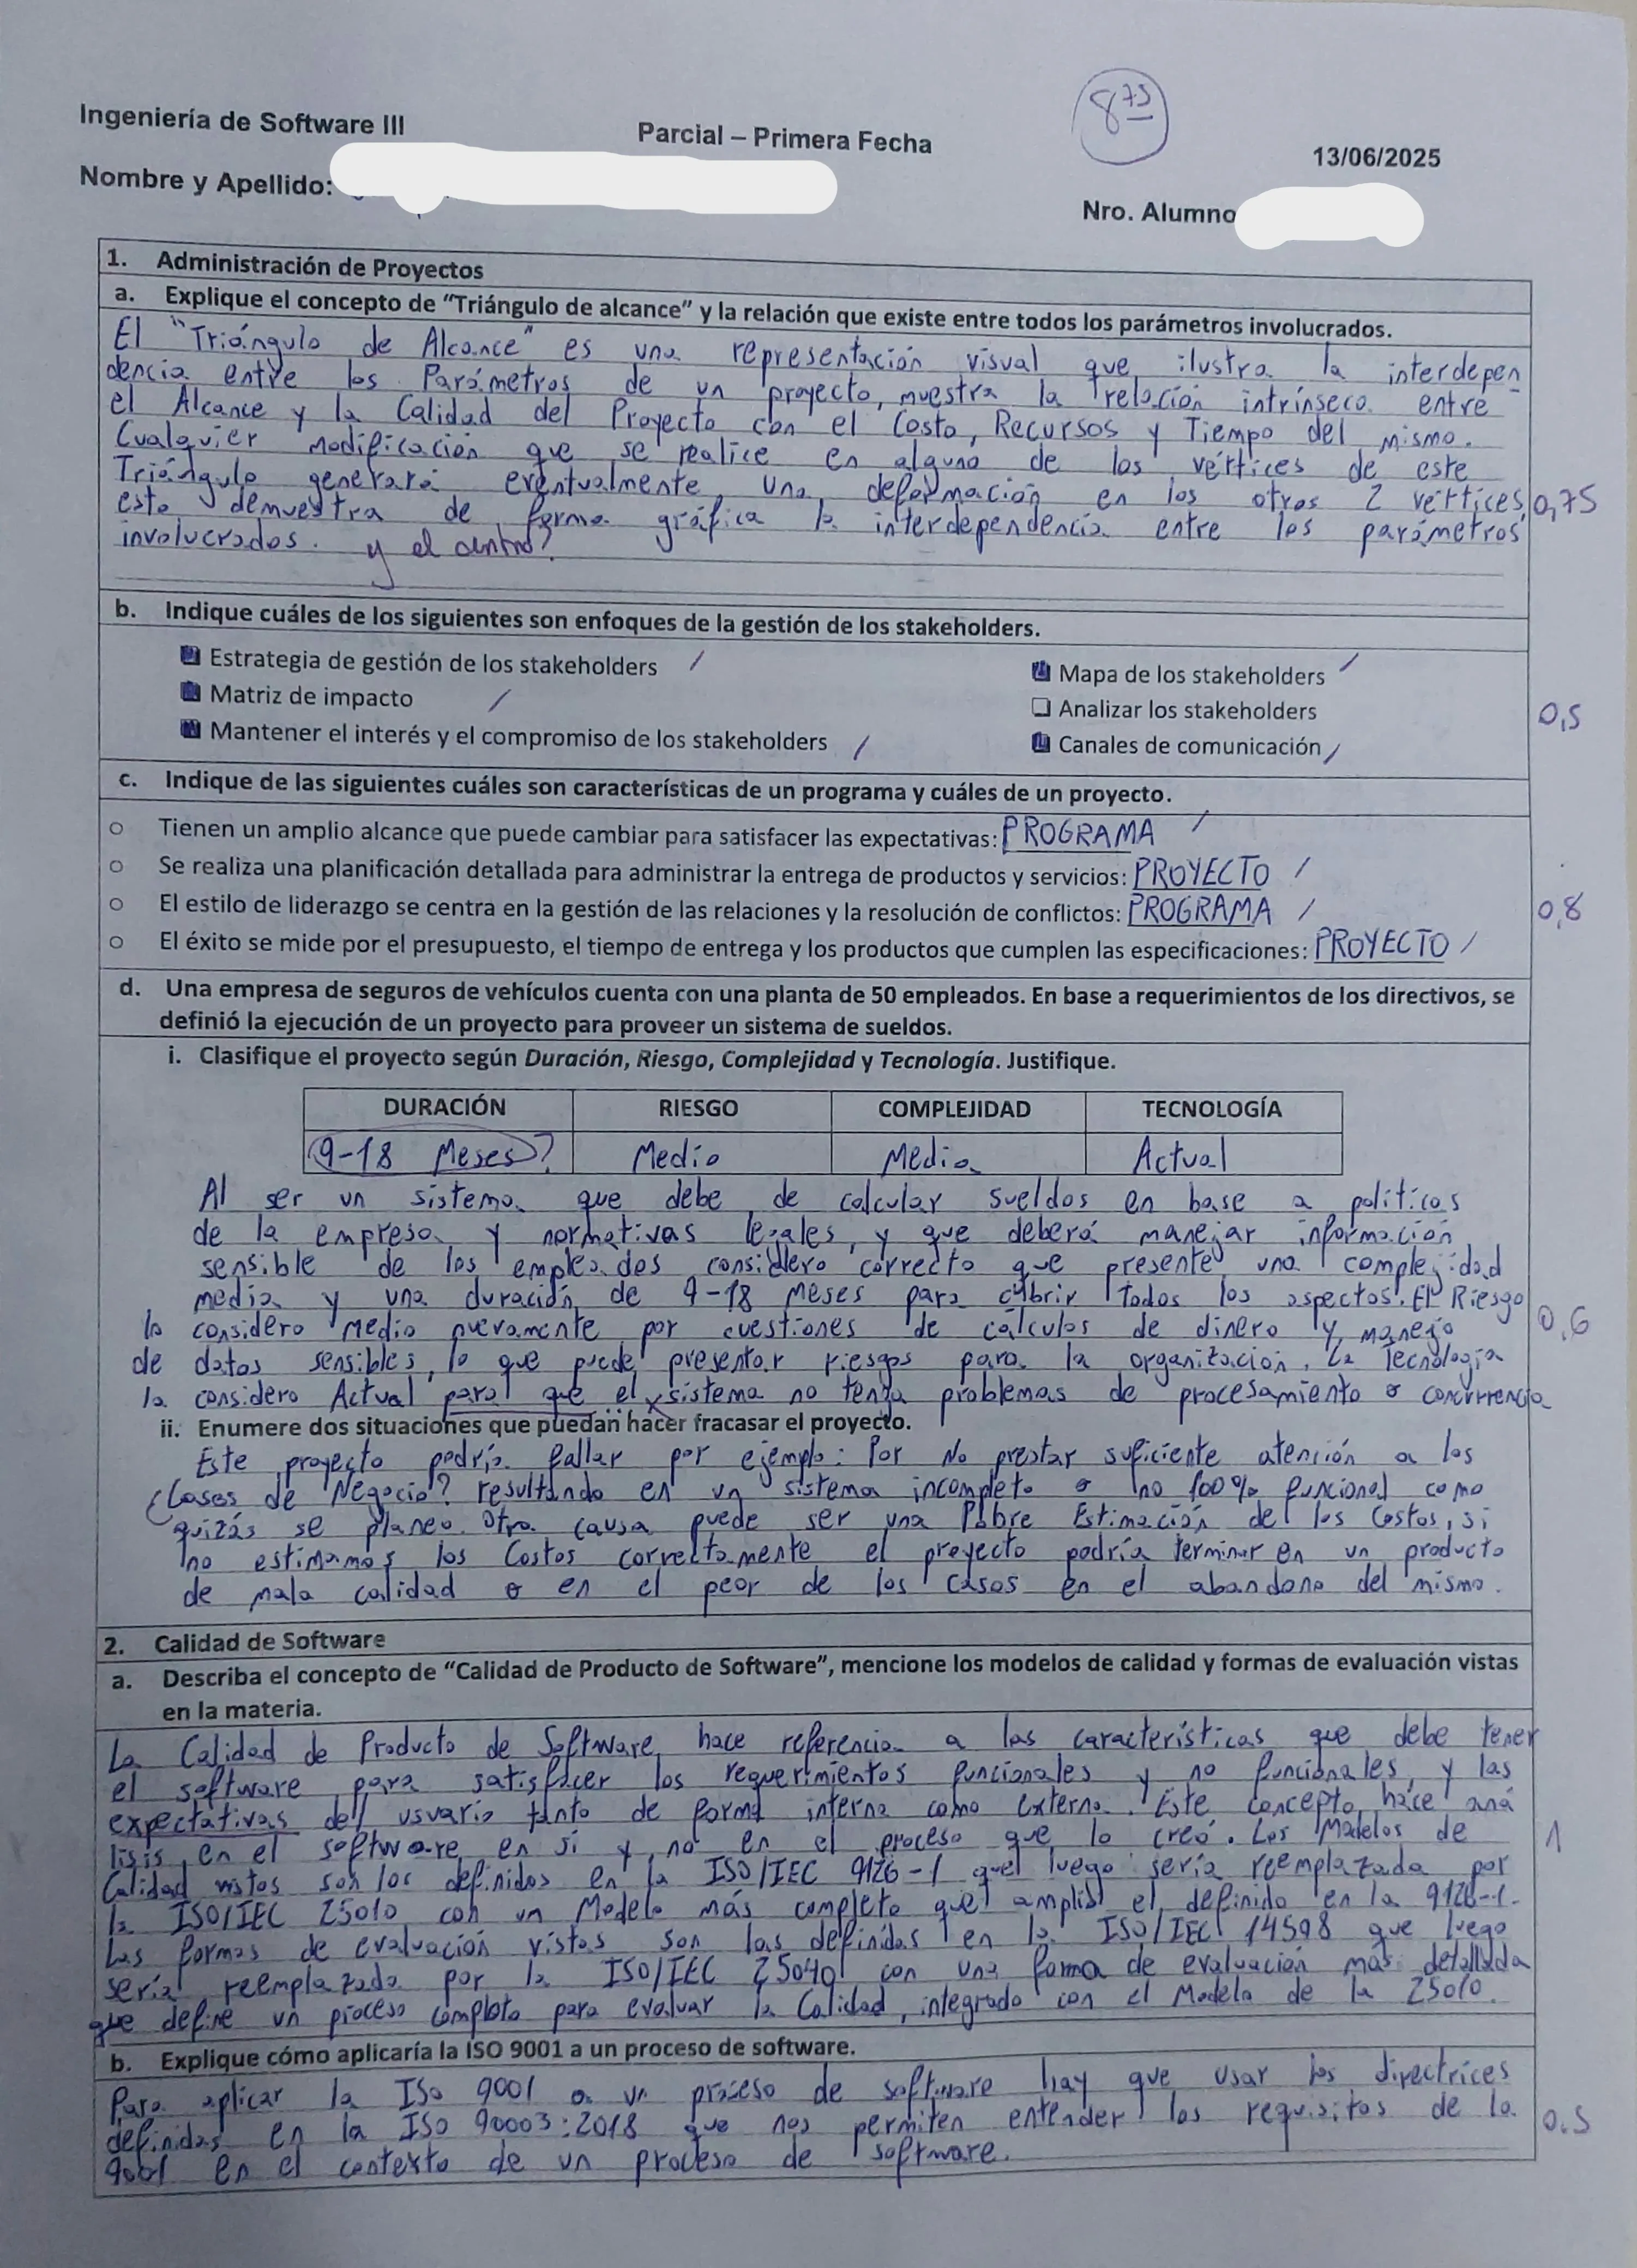 8 75
Ingeniería de Software III
Parcial – Primera Fecha
13/06/2025
Nombre y Apellido:
Nro. Alumno
1. Administración de Proyectos
a. Explique el concepto de “Triángulo de alcance” y la relación que existe entre todos los parámetros involucrados.
El "Triángulo de Alcance" es una representación visual que ilustra la interdepen-
dencia entre los Parámetros de un proyecto, muestra la relación intrínseca entre
el Alcance y la Calidad del Proyecto con el Costo, Recursos y Tiempo del mismo.
Cualquier modificación que se realice en alguno de los vértices de este
Triángulo generará eventualmente una deformación en los otros 2 vértices,
esto demuestra de forma gráfica la interdependencia entre los parámetros
involucrados. y el centro?
0,75
b. Indique cuáles de los siguientes son enfoques de la gestión de los stakeholders.
Estrategia de gestión de los stakeholders
Mapa de los stakeholders
Matriz de impacto
Analizar los stakeholders
Mantener el interés y el compromiso de los stakeholders
Canales de comunicación
0,5
c. Indique de las siguientes cuáles son características de un programa y cuáles de un proyecto.
Tienen un amplio alcance que puede cambiar para satisfacer las expectativas: PROGRAMA
Se realiza una planificación detallada para administrar la entrega de productos y servicios: PROYECTO
El estilo de liderazgo se centra en la gestión de las relaciones y la resolución de conflictos: PROGRAMA
El éxito se mide por el presupuesto, el tiempo de entrega y los productos que cumplen las especificaciones: PROYECTO
0,8
d. Una empresa de seguros de vehículos cuenta con una planta de 50 empleados. En base a requerimientos de los directivos, se
definió la ejecución de un proyecto para proveer un sistema de sueldos.
i. Clasifique el proyecto según Duración, Riesgo, Complejidad y Tecnología. Justifique.
DURACIÓN RIESGO COMPLEJIDAD TECNOLOGÍA
9-18 Meses? Medio Media Actual
Al ser un sistema que debe de calcular sueldos en base a políticas
de la empresa y normativas legales, y que deberá manejar información
sensible de los empleados considero correcto que presente una complejidad
media y una duración de 9-18 meses para cubrir todos los aspectos. El Riesgo
lo considero Medio nuevamente por cuestiones de calculos de dinero y manejo
de datos sensibles, lo que puede presentar riesgos para la organización. La Tecnología
la considero Actual para que el sistema no tenga problemas de procesamiento o concurrencia
0,6
ii. Enumere dos situaciones que puedan hacer fracasar el proyecto.
Este proyecto podría fallar por ejemplo: Por No prestar suficiente atención a los
¿Casos de Negocio? resultando en un sistema incompleto o no 100% funcional como
quizás se planeo. Otra causa puede ser una Pobre Estimación de los Costos, si
no estimamos los Costos correctamente el proyecto podría terminar en un producto
de mala calidad o en el peor de los casos en el abandono del mismo.
2. Calidad de Software
a. Describa el concepto de “Calidad de Producto de Software”, mencione los modelos de calidad y formas de evaluación vistas
en la materia.
La Calidad de Producto de Software hace referencia a las características que debe tener
el software para satisfacer los requerimientos funcionales y no funcionales, y las
expectativas del usuario tanto de forma interna como externa. Este concepto hace aná
lisis en el software en si y no en el proceso que lo creó. Los Modelos de
Calidad vistos son los definidos en la ISO/IEC 9126-1 que luego sería reemplazada por
la ISO/IEC 25010 con un Modelo más completo que amplia el definido en la 9126-1.
Las formas de evaluación vistas son las definidas en la ISO/IEC 14598 que luego
sería reemplazada por la ISO/IEC 25040 con una forma de evaluación más detallada
que define un proceso completo para evaluar la Calidad, integrado con el Modelo de la 25010.
1
b. Explique cómo aplicaría la ISO 9001 a un proceso de software.
Para aplicar la ISO 9001 a un proceso de software hay que usar las directrices
definidas en la ISO 90003:2018 que nos permiten entender los requisitos de la
9001 en el contexto de un proceso de software.
0.5